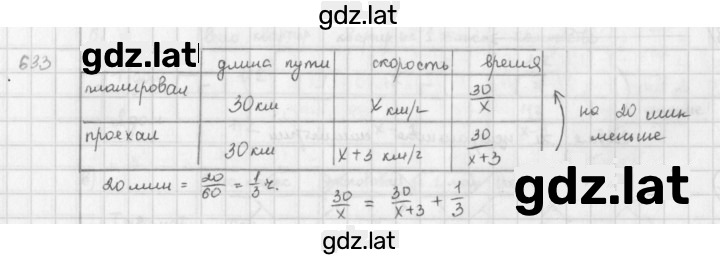 gdz.lat
633
gdz.lat
длина пути скорость время
планировал 30 км x км/г 30/x
на 20 мин меньше
проехал 30 км x+3 км/г 30/x+3
20 мин = 20/60 = 1/3 г.
30/x = 30/x+3 + 1/3
gdz.lat
gdz.lat